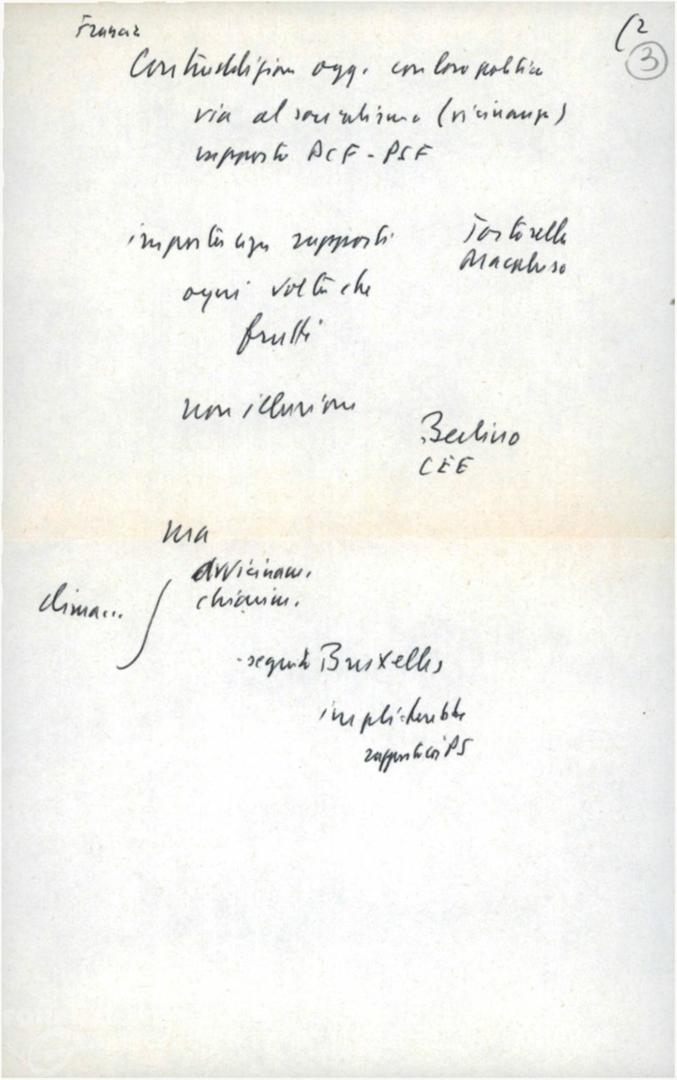 Francia
(2
3
Contraddizioni oggi con loro politica
via al socialismo (vicinanze)
rapporto PCF - PSF
importanza rapporti
Tortorella
Macaluso
ogni volta che
frutti
non illusioni
Berlino
CEE
ma
avvicinam.
chiarim.
clima...
- seguito Bruxelles
rapporti coi PS